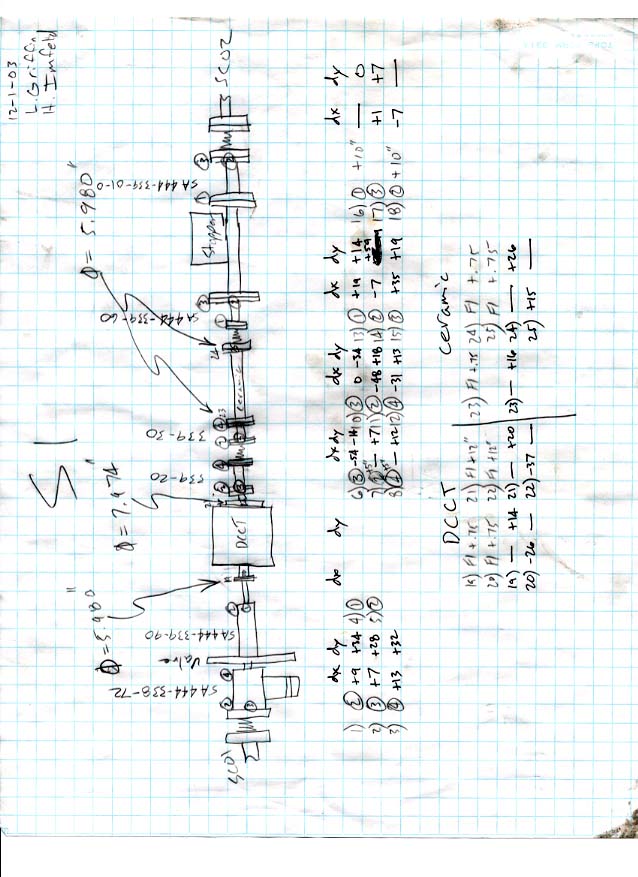 12-1-03
L. Griffin
H. Imfeld
S1
Φ = 5.980"
Φ = 7.974"
Φ = 5.980"
SC01
SA444-338-72
Valve
SA444-339-90
DCCT
339-20
339-30
ceramic
24
23
SA444-339-60
Stopper
SA444-339-01-0
SC02
dx dy
1) ② +9 +34
2) ③ +7 +28
3) ④ +13 +32
dx dy
4) ①
5) ②
dx dy
6) ③ -54 -14
7) ② +5" — +7
8) ① +5" — +12
dx dy
10) ③ 0 -34
11) ② -48 +18
12) ④ -31 +13
dx dy
13) ① +19 +14
14) ② -7 +59
15) ③ +35 +19
dx dy
16) ① +10" — 0
17) ③ +1 +7
18) ② +10" -7 —
DCCT
19) F1 +.75 21) F1 +12"
20) F1 +.75 22) F1 +12"
19) — +14 21) — +20
20) -26 — 22) -37 —
ceramic
23) F1 +.75 24) F1 +.75
25) F1 +.75
23) — +16 24) — +26
25) +15 —